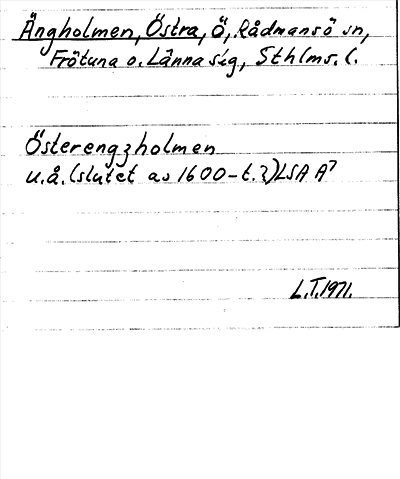 Ängholmen, Östra, Ö, Rådmansö sn,
Frötuna o. Länna slg, Sthlms. l.
Österengzholmen
u.å. (slutet av 1600-t.?) LSA A7
L.T. 1971.